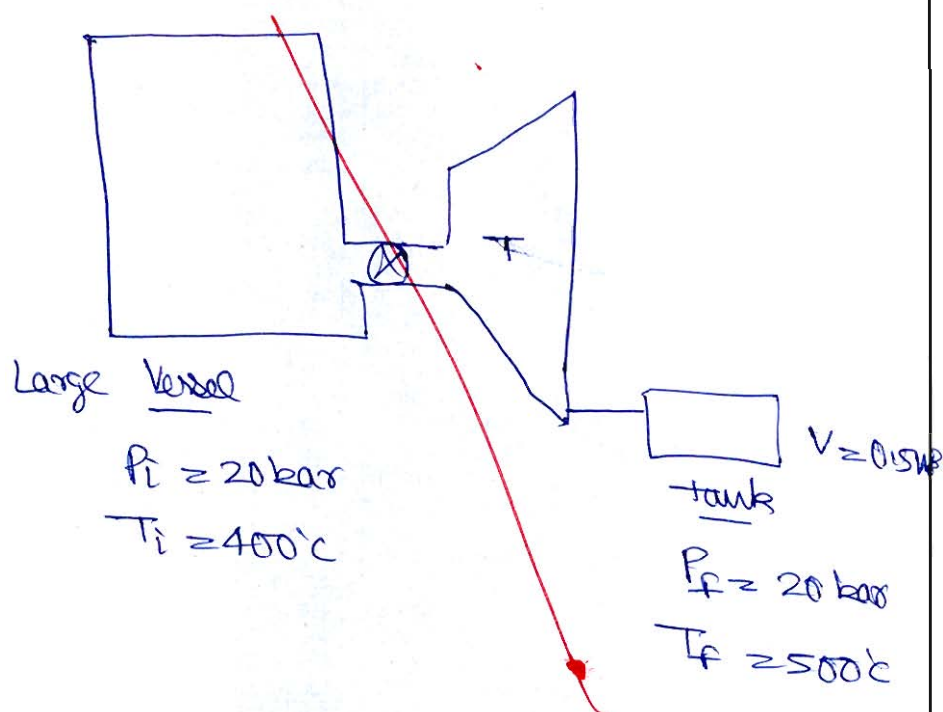 T
Large Vessel
Pi = 20 bar
Ti = 400°C
V = 0.5m3
tank
Pf = 20 bar
Tf = 500°C